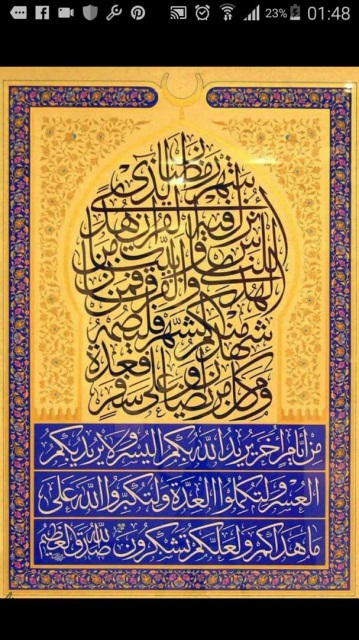 23% 01:48
شهر رمضان الذي
أنزل فيه القرآن هدى
للناس وبينات من
الهدى والفرقان فمن
شهد منكم الشهر فليصمه
ومن كان مريضا أو على سفر فعدة
من أيام أخر يريد الله بكم اليسر ولا يريد بكم
العسر ولتكملوا العدة ولتكبروا الله على
ما هداكم ولعلكم تشكرون صدق الله العظيم